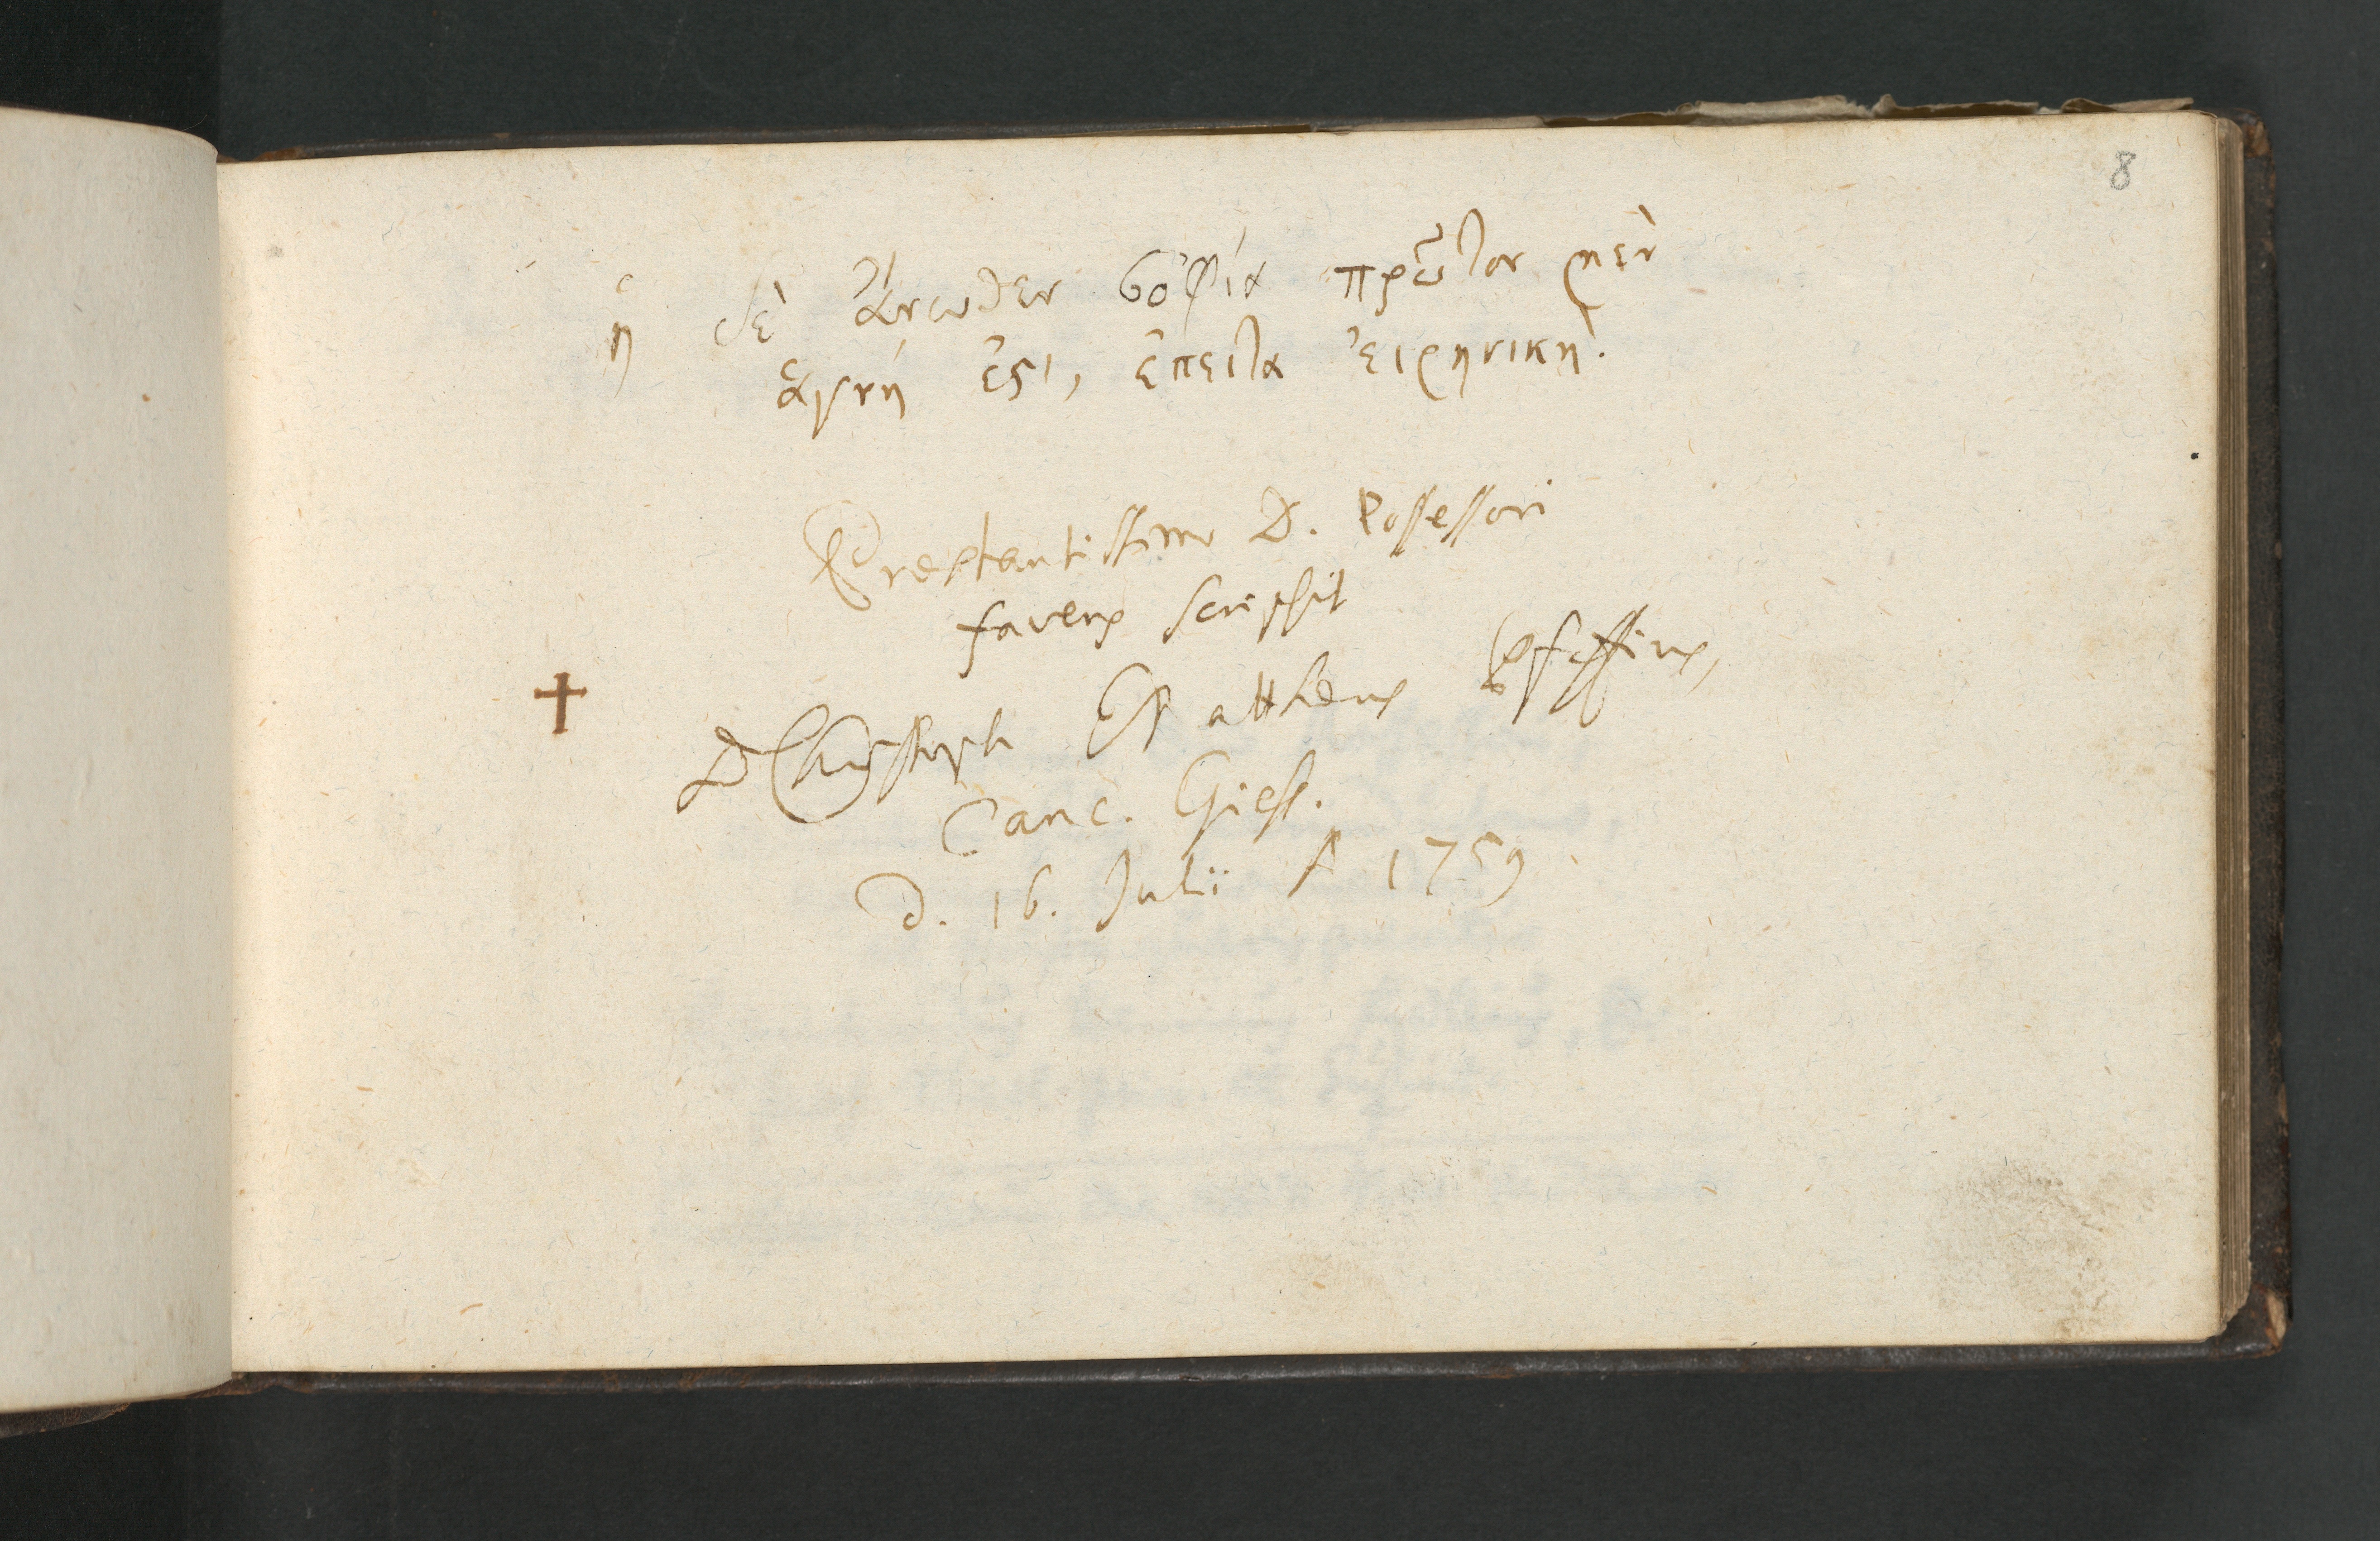 8
ἡ δὲ ἄνωθεν σοφία πρῶτον μὲν
ἁγνή ἐϛι, ἔπειτα εἰρηνική.
Prestantissimo D. Possessori
favens scripsit
† D Christoph Mattheus Pfaffius,
Canc. Giess.
d. 16. Julii A 1759